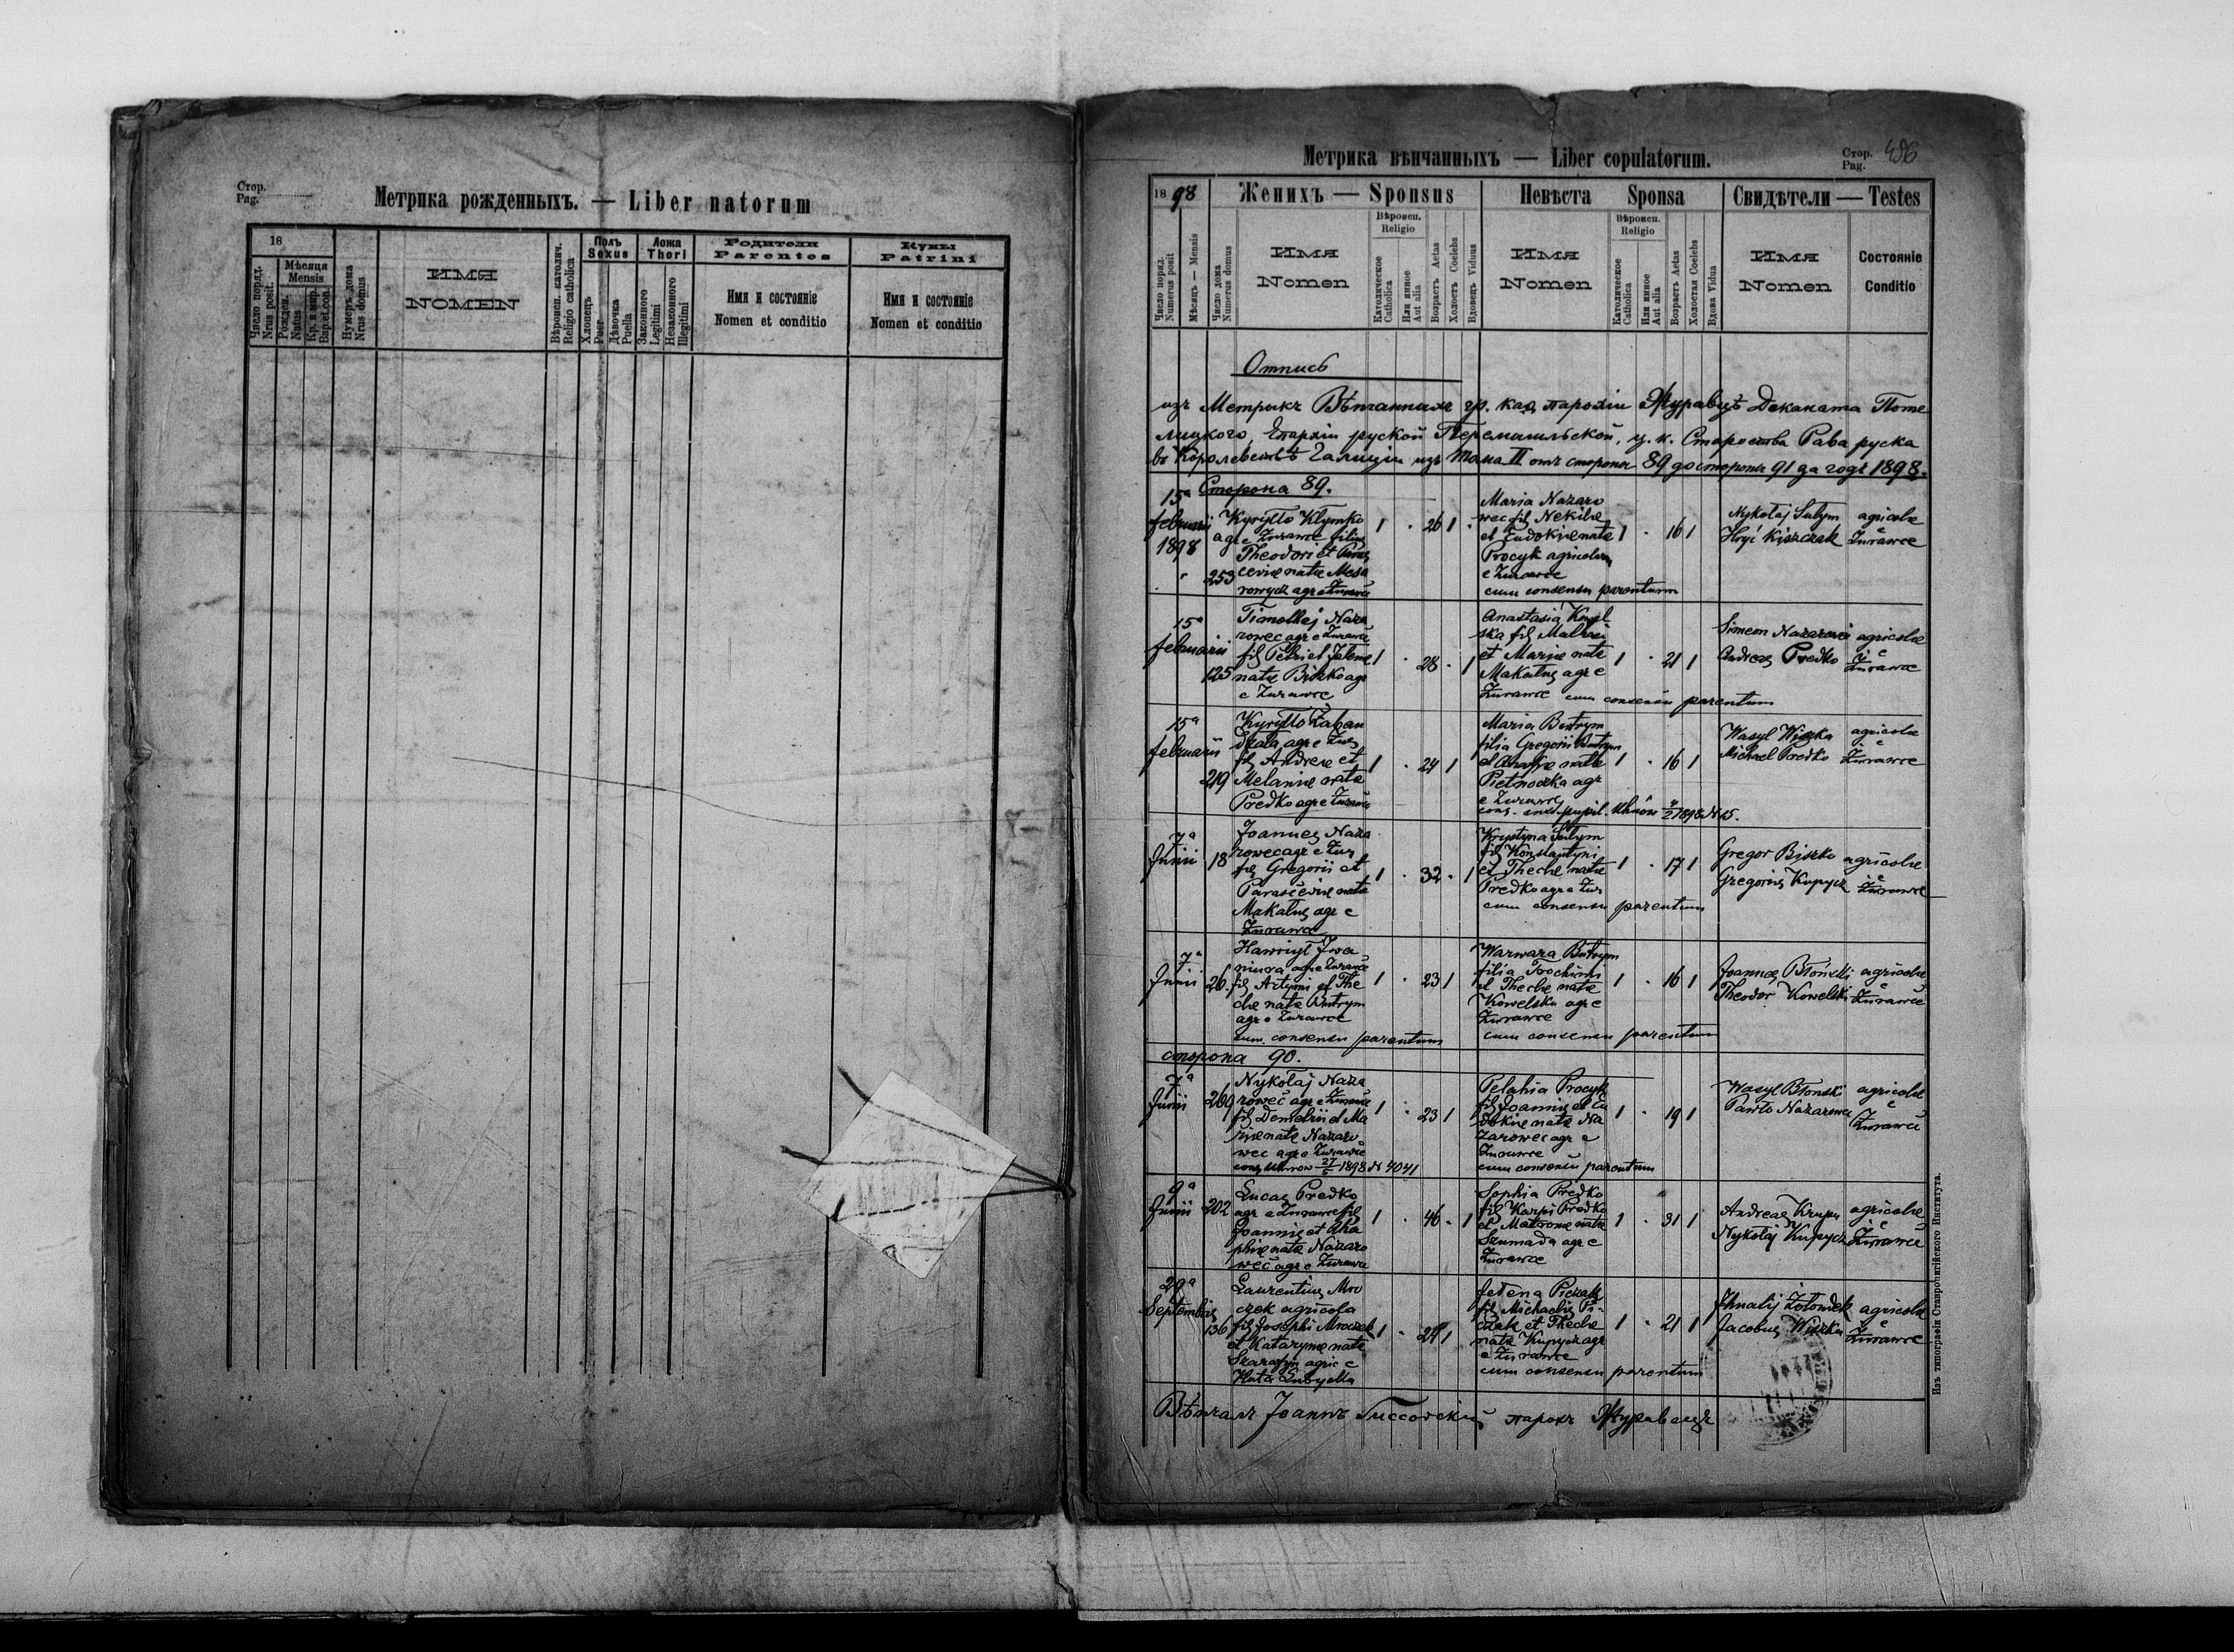 Стор.
Pag.
Метрика рожденныхъ. — Liber natorum
18
Число поряд.
Nrus posit.
Мѣсяця
Mensis
Рожден.
Natus
Кр. и мир.
Bap. et con.
Нумеръ дома
Nrus domus
ИМЯ
NOMEN
Вѣроисп. католич.
Religio catholica
Полъ
Sexus
Хлопецъ
Puer
Дѣвочка
Puella
Ложа
Thori
Законного
Legitimi
Незаконного
Illegitimi
Родители
Parentes
Имя и состоянie
Nomen et conditio
Кумы
Patrini
Имя и состоянie
Nomen et conditio
Метрика вѣнчанныхъ — Liber copulatorum.
Стор.
Pag. 496
1898
Женихъ — Sponsus
Невѣста Sponsa
Свидѣтели — Testes
Число поряд.
Numerus posit
Мѣсяцъ — Mensis
Число дома
Numerus domus
Имя
Nomen
Вѣроисп.
Religio
Католическое
Catholica
Или инное
Aut alia
Возрастъ Aetas
Холостъ Coelebs
Вдовецъ Viduus
Имя
Nomen
Вѣроисп.
Religio
Католическое
Catholica
Или инное
Aut alia
Возрастъ Aetas
Холостая Coelebs
Вдова Vidua
Имя
Nomen
Состоянie
Conditio
Отпись
изъ Метрыкъ Вѣнчанныхъ гр. каѳ. парохіи Журавцѣ Деканата Поте
лицкого, Епархіи руской Перемышльской, ц. к. Староства Рава руска
въ Королевствѣ Галиціи изъ Тома II отъ стороны 89 до стороны 91 за годъ 1898.
Сторона 89.
15ª
februarii
1898
253
Kyryłło Klymko
agr e Żurawce filius
Theodori et Paras
ceviae natae
agr e Żurawce
1 · 26 1 ·
Maria Nazaro
wec fil
et Eudokiae natae
Procyk agricolarum
e Żurawce
cum consensu parentum
1 · 16 1
Nykołaj Sułym
Hryć Kiszczak
agricolae
e
Żurawce
15ª
februarii
125
Timothej Naza
rowec agr e Żurawce
fil Petri et Jelenae
natae Biszko agr
e Żurawce
1 · 28 · 1
Anastasia
fil
et Mariae natae
Makałus agr e
Żurawce cum consensu parentum
1 · 21 1
Simeon Nazarowec
Andreas Predko
agricolae
e
Żurawce
15ª
februarii
219
Kyryłło
agr e Żur
fil Andreae et
Melaniae natae
Predko agr e Żurawce
1 · 24 1
Maria Butrym
filia Gregorii Butrym
et natae
agr
e Żurawce
pupil. Uhnów 1898 N 65.
1 · 16 1
Wasyl Wiszka
Michael Predko
agricolae
e
Żurawce
7ª
Junii
18
Joannes Naza
rowec agr e Żur
fil Gregorii et
Parasceviae natae
Makałus agr e
Żurawce
1 · 32 · 1
Krystyna Sułym
fil Konstantyni
et Theclae natae
Predko agr e Żur
cum consensu parentum
1 · 17 1
Gregor Biszko
Gregorius Kupycz
agricolae
e
Żurawce
7ª
Junii
26.
Hawryił Iwa
agr e Żurawce
fil et The
clae natae Butrym
agr e Żurawce
cum consensu parentum
1 · 23 1
Warwara Butrym
filia Trochimi
et Theclae natae
Kowelska agr e
Żurawce
cum consensu parentum
1 · 16 1
Joannes Błoński
Theodor Kowelski
agricolae
e
Żurawce
сторона 90.
7ª
Junii
269
Nykołaj Naza
rowec agr e Żurawce
fil Demetrii et Ma
riae natae Nazaro
wec agr e Żurawce
cons Uhnów 1898 N 4041
1 · 23 1
Pelahia Procyk
fil Joannis et Eu
dokiae natae Na
zarowec agr e
Żurawce
cum consensu parentum
1 · 19 1
Wasyl Błonski
Pawło Nazarowec
agricolae
e
Żurawce
9ª
Junii
202
Lucas Predko
agr e Żurawce fil
Joannis et
natae Nazaro
wec agr e Żurawce
1 · 46 · 1
Sophia Predko
fil Karpi Predko
et Matronae natae
Szumada agr e
Żurawce
1 · 31 1
Andreas Krupa
Nykołaj Kupycz
agricolae
e
Żurawce
29ª
Septembris
136
Laurentius Mro
czek agricola
fil Josephi Mroczek
et Katarynae natae
agric e
Huta Lubycka
1 · 24 1
Jełena Piczak
fil Michaelis Pi-
czak et Theclae
natae Kupycz agr
e Żurawce
cum consensu parentum
1 · 21 1
Ihnatij
Jacobus Wiszka
agricolae
e
Żurawce
Вѣнчалъ Іоаннъ парохъ Журавецкій
Изъ типографіи Ставропигійского Института.